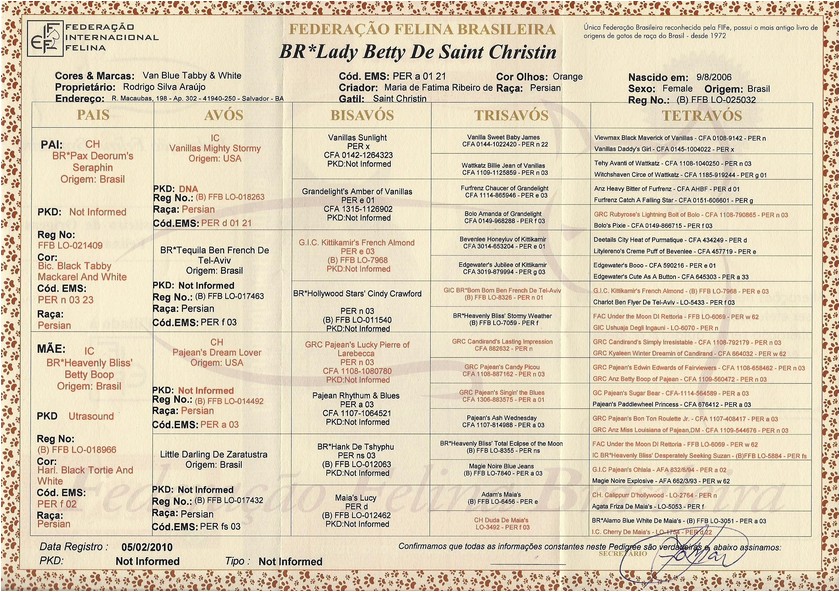 FEDERAÇÃO
INTERNACIONAL
FELINA
FEDERAÇÃO FELINA BRASILEIRA
BR*Lady Betty De Saint Christin
Única Federação Brasileira reconhecida pela FIFe, possui o mais antigo livro de
origens de gatos de raça do Brasil - desde 1972
Cores & Marcas: Van Blue Tabby & White
Proprietário: Rodrigo Silva Araújo
Endereço: R. Macaubas, 198 - Ap. 302 - 41940-250 - Salvador - BA
Cód. EMS: PER a 01 21 Cor Olhos: Orange
Criador: Maria de Fatima Ribeiro de Raça: Persian
Gatil: Saint Christin
Nascido em: 9/8/2006
Sexo: Female Origem: Brasil
Reg No.: (B) FFB LO-025032
PAIS AVÓS BISAVÓS TRISAVÓS TETRAVÓS
PAI: CH
BR*Pax Deorum's
Seraphin
Origem: Brasil
PKD: Not Informed
Reg No:
FFB LO-021409
Cor:
Bic. Black Tabby
Mackarel And White
Cód. EMS:
PER n 03 23
Raça:
Persian
MÃE: IC
BR*Heavenly Bliss'
Betty Boop
Origem: Brasil
PKD Ultrasound
Reg No:
(B) FFB LO-018966
Cor:
Harl. Black Tortie And
White
Cód. EMS:
PER f 02
Raça:
Persian
IC
Vanillas Mighty Stormy
Origem: USA
PKD: DNA
Reg No.: (B) FFB LO-018263
Raça: Persian
Cód.EMS: PER d 01 21
BR*Tequila Ben French De
Tel-Aviv
Origem: Brasil
PKD: Not Informed
Reg No.: (B) FFB LO-017463
Raça: Persian
Cód.EMS: PER f 03
CH
Pajean's Dream Lover
Origem: USA
PKD: Not Informed
Reg No.: (B) FFB LO-014492
Raça: Persian
Cód.EMS: PER a 03
Little Darling De Zaratustra
Origem: Brasil
PKD: Not Informed
Reg No.: (B) FFB LO-017432
Raça: Persian
Cód.EMS: PER fs 03
Vanillas Sunlight
PER x
CFA 0142-1264323
PKD:Not Informed
Grandelight's Amber of Vanillas
PER e 01
CFA 1315-1126902
PKD:Not Informed
G.I.C. Kittikamir's French Almond
PER e 03
(B) FFB LO-7968
PKD:Not Informed
BR*Hollywood Stars' Cindy Crawford
PER n 03
(B) FFB LO-011540
PKD:Not Informed
GRC Pajean's Lucky Pierre of
Larebecca
PER n 03
CFA 1108-1080780
PKD:Not Informed
Pajean Rhythm & Blues
PER a 03
CFA 1107-1064521
PKD:Not Informed
BR*Hank De Tshyphu
PER ns 03
(B) FFB LO-012063
PKD:Not Informed
Maia's Lucy
PER d
(B) FFB LO-012462
PKD:Not Informed
Vanilla Sweet Baby James
CFA 0144-1022420 - PER n 22
Wattkatz Billie Jean of Vanillas
CFA 1109-1125859 - PER n 03
Furfrenz Chaucer of Grandelight
CFA 1114-865946 - PER e 03
Bolo Amanda of Grandelight
CFA 0149-968288 - PER f 03
Bevenlee Honeyluv of Kittikamir
CFA 3014-653204 - PER e 01
Edgewater's Jubilee of Kittikamir
CFA 3019-879994 - PER g 03
GIC BR*Bom Bom Ben French De Tel-Aviv
(B) FFB LO-8326 - PER n 01
BR*Heavenly Bliss' Stormy Weather
(B) FFB LO-7059 - PER f
GRC Candirand's Lasting Impression
CFA 882632 - PER n
GRC Pajean's Candy Picou
CFA 1108-887162 - PER n 03
GRC Pajean's Singin' the Blues
CFA 1306-883575 - PER a 01
Pajean's Ash Wednesday
CFA 1107-814988 - PER a 03
BR*Heavenly Bliss' Total Eclipse of the Moon
(B) FFB LO-8355 - PER ns
Magie Noire Blue Jeans
(B) FFB LO-7840 - PER a 03
Adam's Maia's
(B) FFB LO-6456 - PER e
CH Duda De Maia's
LO-3492 - PER f 03
Viewmax Black Maverick of Vanillas - CFA 0108-9142 - PER n
Vanillas Daddy's Girl - CFA 0145-1004022 - PER x
Tehy Avanti of Wattkatz - CFA 1108-1040250 - PER n 03
Witchshaven Circe of Wattkatz - CFA 1185-919244 - PER g 01
Anz Heavy Bitter of Furfrenz - CFA AHBF - PER d 01
Furfrenz Catch A Falling Star - CFA 0151-606601 - PER g
GRC Rubyrose's Lightning Bolt of Bolo - CFA 1108-790865 - PER n 03
Bolo's Pixie - CFA 0149-866715 - PER f 03
Deetails City Heat of Purmatique - CFA 434249 - PER d
Litylereno's Creme Puff of Bevenlee - CFA 457719 - PER e
Edgewater's Booo - CFA 590216 - PER e 01
Edgewater's Cute As A Button - CFA 645303 - PER e 33
G.I.C. Kittikamir's French Almond - (B) FFB LO-7968 - PER e 03
Charlot Ben Flyer De Tel-Aviv - LO-5433 - PER f 03
FAC Under the Moon Di Rettoria - FFB LO-6069 - PER w 62
GIC Ushuaga Degli Ingauni - LO-6070 - PER n
GRC Candirand's Simply Irresistable - CFA 1108-792179 - PER n 03
GRC Kyaleen Winter Dreamin of Candirand - CFA 664032 - PER w 62
GRC Pajean's Edwin Edwards of Fairviewers - CFA 1108-658462 - PER n 03
GRC Anz Betty Boop of Pajean - CFA 1109-560472 - PER n 03
GC Pajean's Sugar Bear - CFA-1114-564589 - PER a 03
Pajean's Paddlewheel Princess - CFA 676412 - PER a 03
GRC Pajean's Bon Ton Roulette Jr. - CFA 1107-408417 - PER a 03
GRC Anz Miss Louisiana of Pajean,DM - CFA 1109-544676 - PER n 03
FAC Under the Moon Di Rettoria - FFB LO-6069 - PER w 62
IC BR*Heavenly Bliss' Desperately Seeking Suzan - (B) FFB LO-5884 - PER fs
G.I.C Pajean's Ohlala - AFA 832/6/94 - PER a 02
Magie Noire Explosive - AFA 662/3/93 - PER w 62
CH. Calippurr D'hollywood - LO-2764 - PER n
Agata Friza De Maia's - LO-5053 - PER f
BR*Alamo Blue White De Maia's - (B) FFB LO-3051 - PER a 03
I.C. Cherry De Maia's - LO-1754 - PER d 22
Data Registro : 05/02/2010
PKD: Not Informed Tipo : Not Informed
Confirmamos que todas as informações constantes neste Pedigree são verdadeiras e abaixo assinamos:
SECRETÁRIO